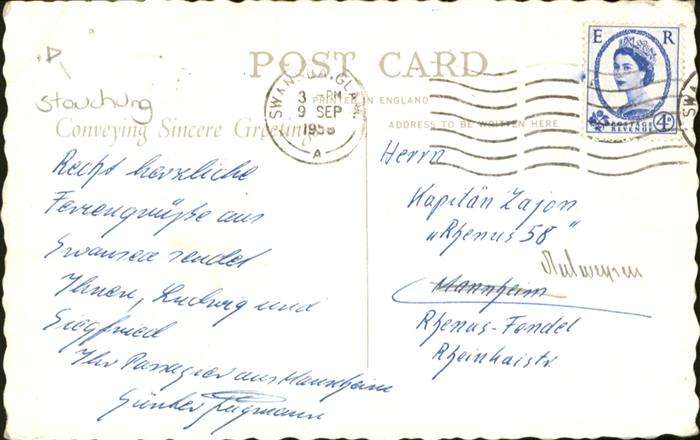 POST CARD
PRINTED IN ENGLAND
Conveying Sincere Greetings
ADDRESS TO BE WRITTEN HERE
E R
POSTAGE
REVENUE
4D
SWANSEA, GLAM.
3 - PM
9 SEP
1958
A
Recht herzliche
Feriengrüße aus
Swansea sendet
Ihnen, Ludwig und
Siegfried
Ihr Passagier aus Mannheim
Günter
Herrn
Kapitän Zajon
„Rhenus 58"
Antwerpen
Mannheim
Rhenus-Fendel
Rheinkaistr